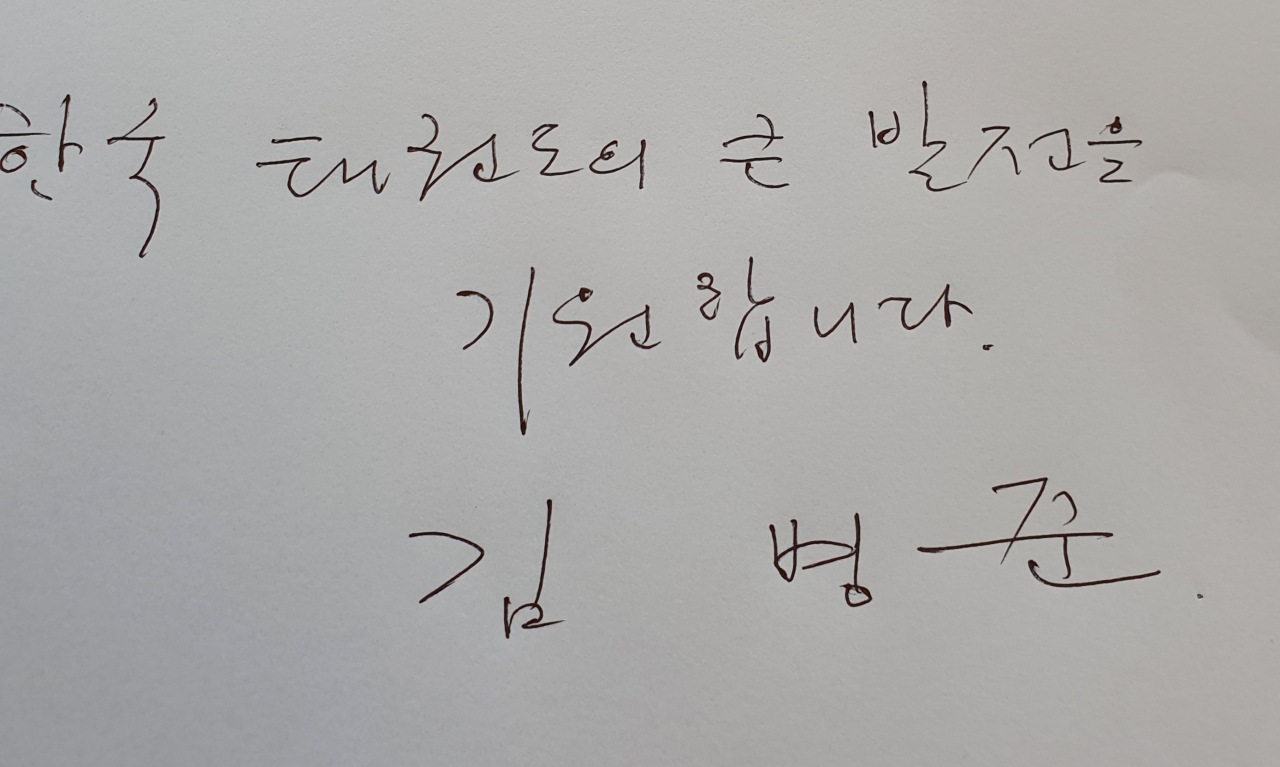 한국 태권도의 큰 발전을
기원합니다.
김 병준.